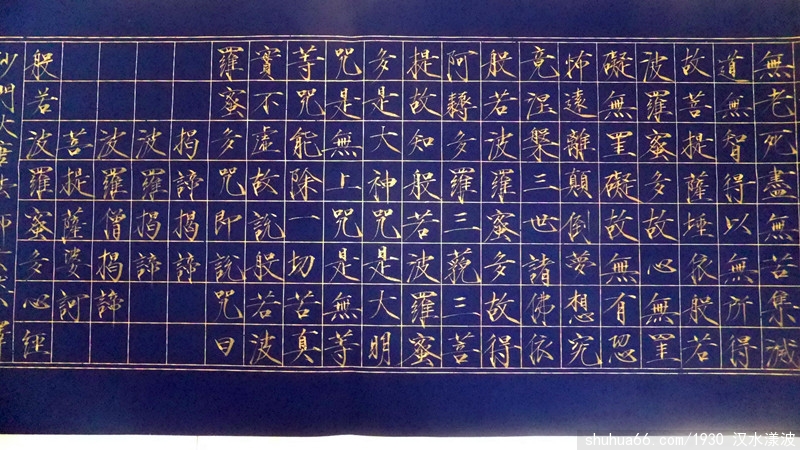 無老死盡無苦集滅
道無智得以無所得
故菩提薩埵依般若
波羅蜜多故心無罣
礙無罣礙故無有恐
怖遠離顛倒夢想究
竟涅槃三世諸佛依
般若波羅蜜多故得
阿耨多羅三藐三菩
提故知般若波羅蜜
多是大神咒是大明
咒是無上咒是無等
等咒能除一切苦真
實不虛故說般若波
羅蜜多咒即說咒曰
揭諦揭諦
波羅揭諦
波羅僧揭諦
菩提薩婆訶
般若波羅蜜多心經
沙門大
shuhua66.com/1930 汉水漾波